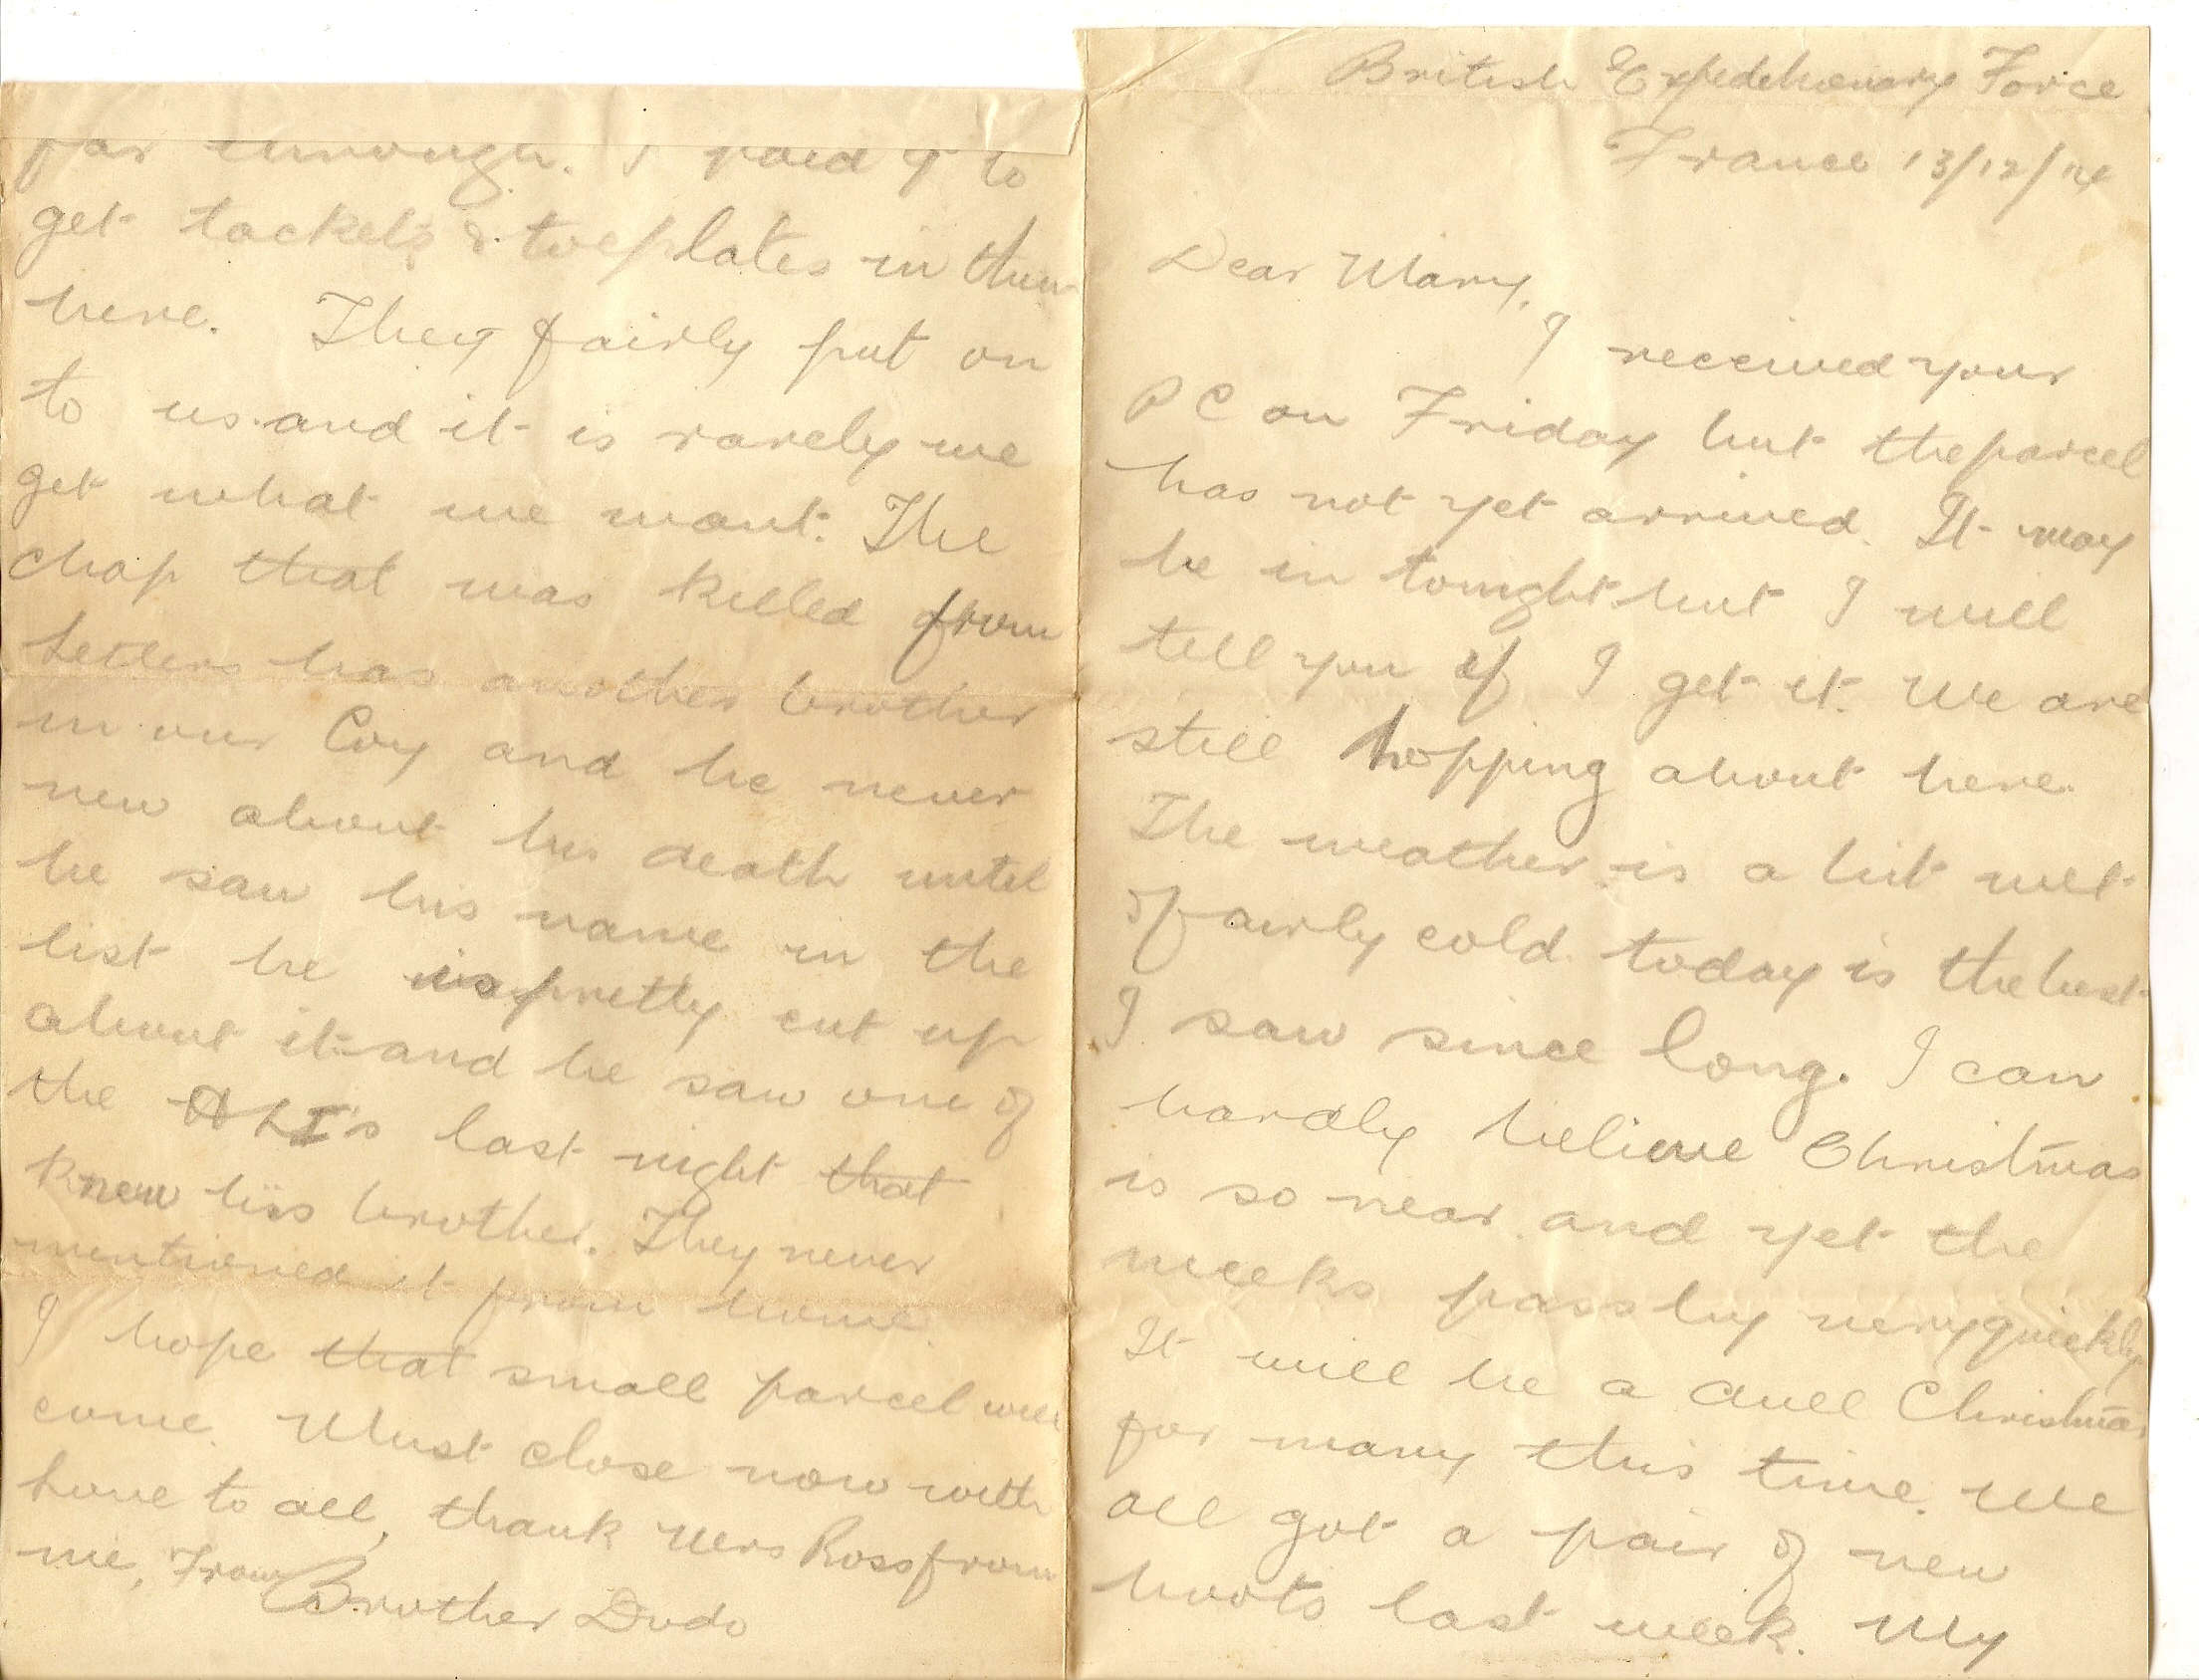 British Expeditionary Force
France 13/12/14
Dear Mary,
I received your
P C on Friday but the parcel
has not yet arrived. It may
be in tonight but I will
tell you if I get it. We are
still hopping about here.
The weather is a bit wet
& fairly cold. today is the best
I saw since long. I can
hardly believe Christmas
is so near and yet the
weeks pass by very quickly
It will be a dull Christmas
for many this time. We
all got a pair of new
boots last week. My
far through. I paid to
get tackets & toeplates in them
here. They fairly put on
to us and it is rarely we
get what we want. The
chap that was killed from
has another brother
in our Coy and he never
new about his death until
he saw his name in the
list he is pretty cut up
about it and he saw one of
the HLI's last night that
knew his brother. They never
mentioned it from home.
I hope that small parcel will
come. Must close now with
love to all, thank Mrs Ross from
me, From Brother Dodo